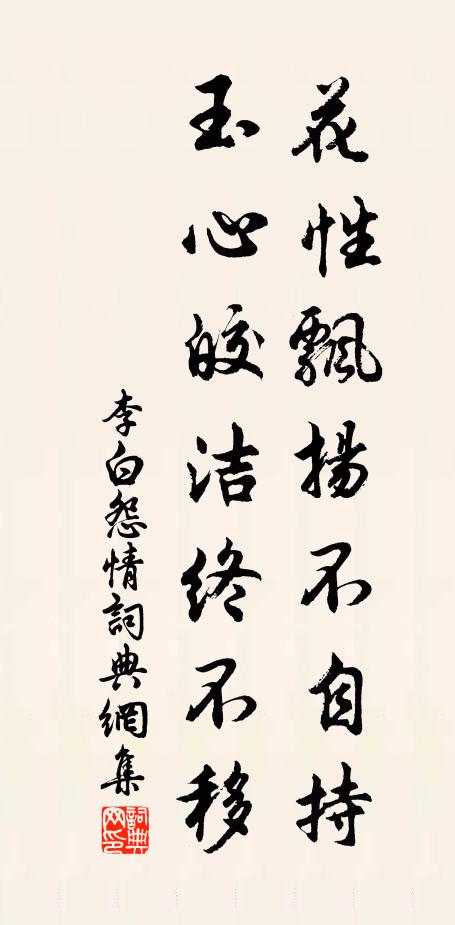 花性飄揚不自持
玉心皎洁終不移
李白怨情詞典網集
詞典網印